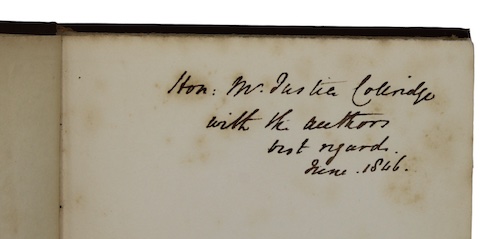 Hon: Mr. Justice Coleridge
with the authors
best regards.
June . 1846.